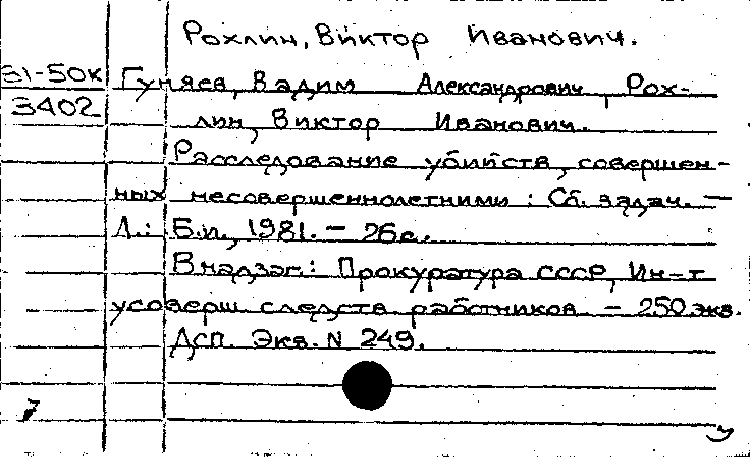 Рохлин, Виктор Иванович.
81-50к Гуняев, Вадим Александрович, Рох-
3402 лин, Виктор Иванович.
Расследование убийств, совершен-
ных несовершеннолетними : Сб. задач. —
Л.: Б.и., 1981. — 26 с.
В надзаг.: Прокуратура СССР, Ин-т
усоверш. следств. работников. — 250 экз.
Дсп. Экз. N 249.